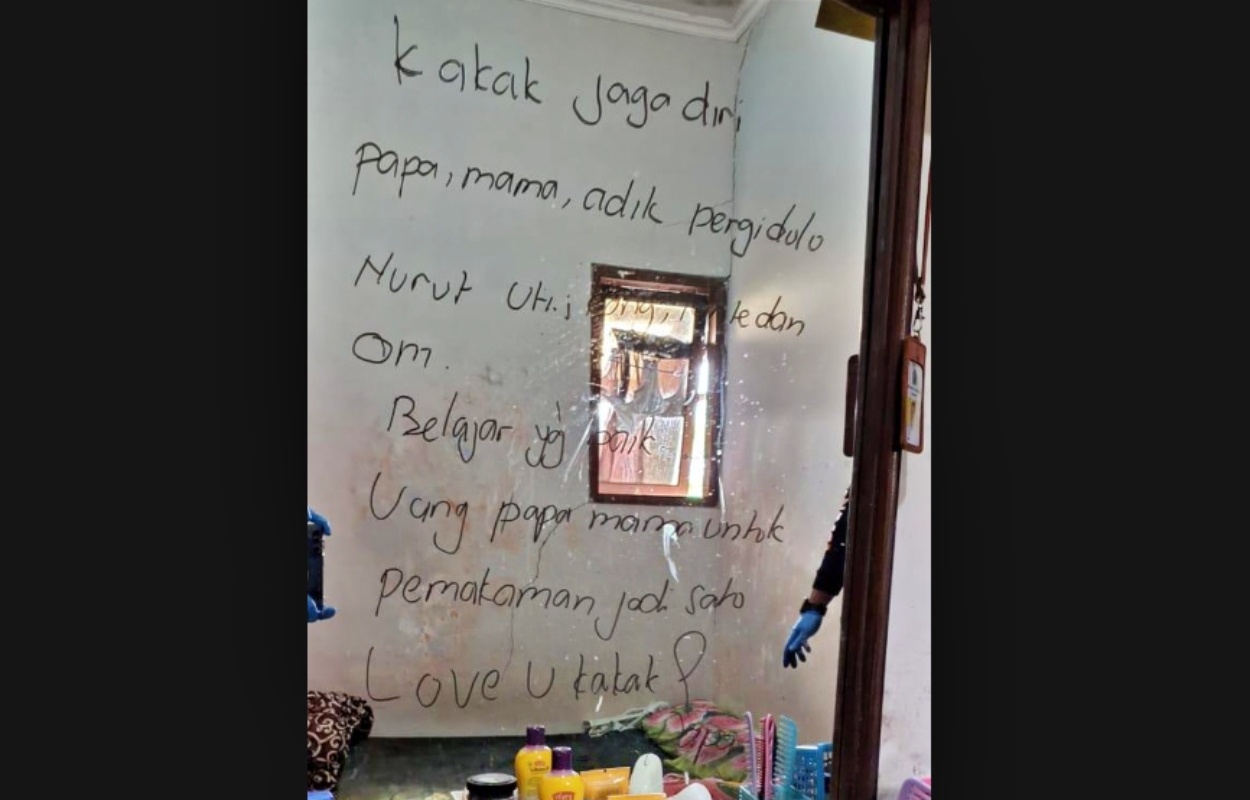 Kakak jaga diri
papa, mama, adik pergi dulo
Nurut Uti, dan
Om.
Belajar yg baik
Uang papa mama untuk
pemakaman jadi sato
Love U kakak